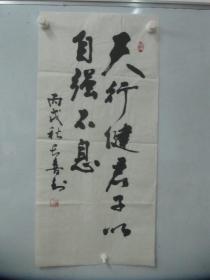 天行健君子以
自强不息
丙戌秋长喜书